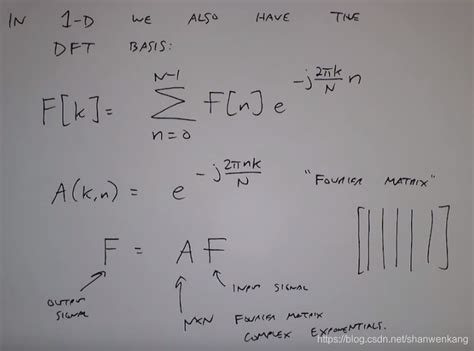 IN 1-D WE ALSO HAVE THE
DFT BASIS:
F[k] = N-1 ∑ n=0 F[n] e^{-j 2πk/N n}
A(k,n) = e^{-j 2πnk/N}
"FOURIER MATRIX"
F = A F
OUTPUT SIGNAL
INPUT SIGNAL
NXN FOURIER MATRIX
COMPLEX EXPONENTIALS.
https://blog.csdn.net/shanwenkang